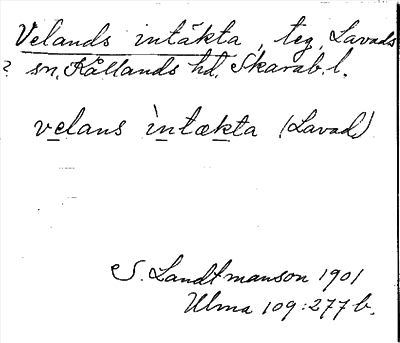 Velands intäkta, teg, Lavads
? sn, Kållands hd, Skarab. l.
velans ìntækta (Lavad)
S. Landtmanson 1901
Ulma 109:277 b.